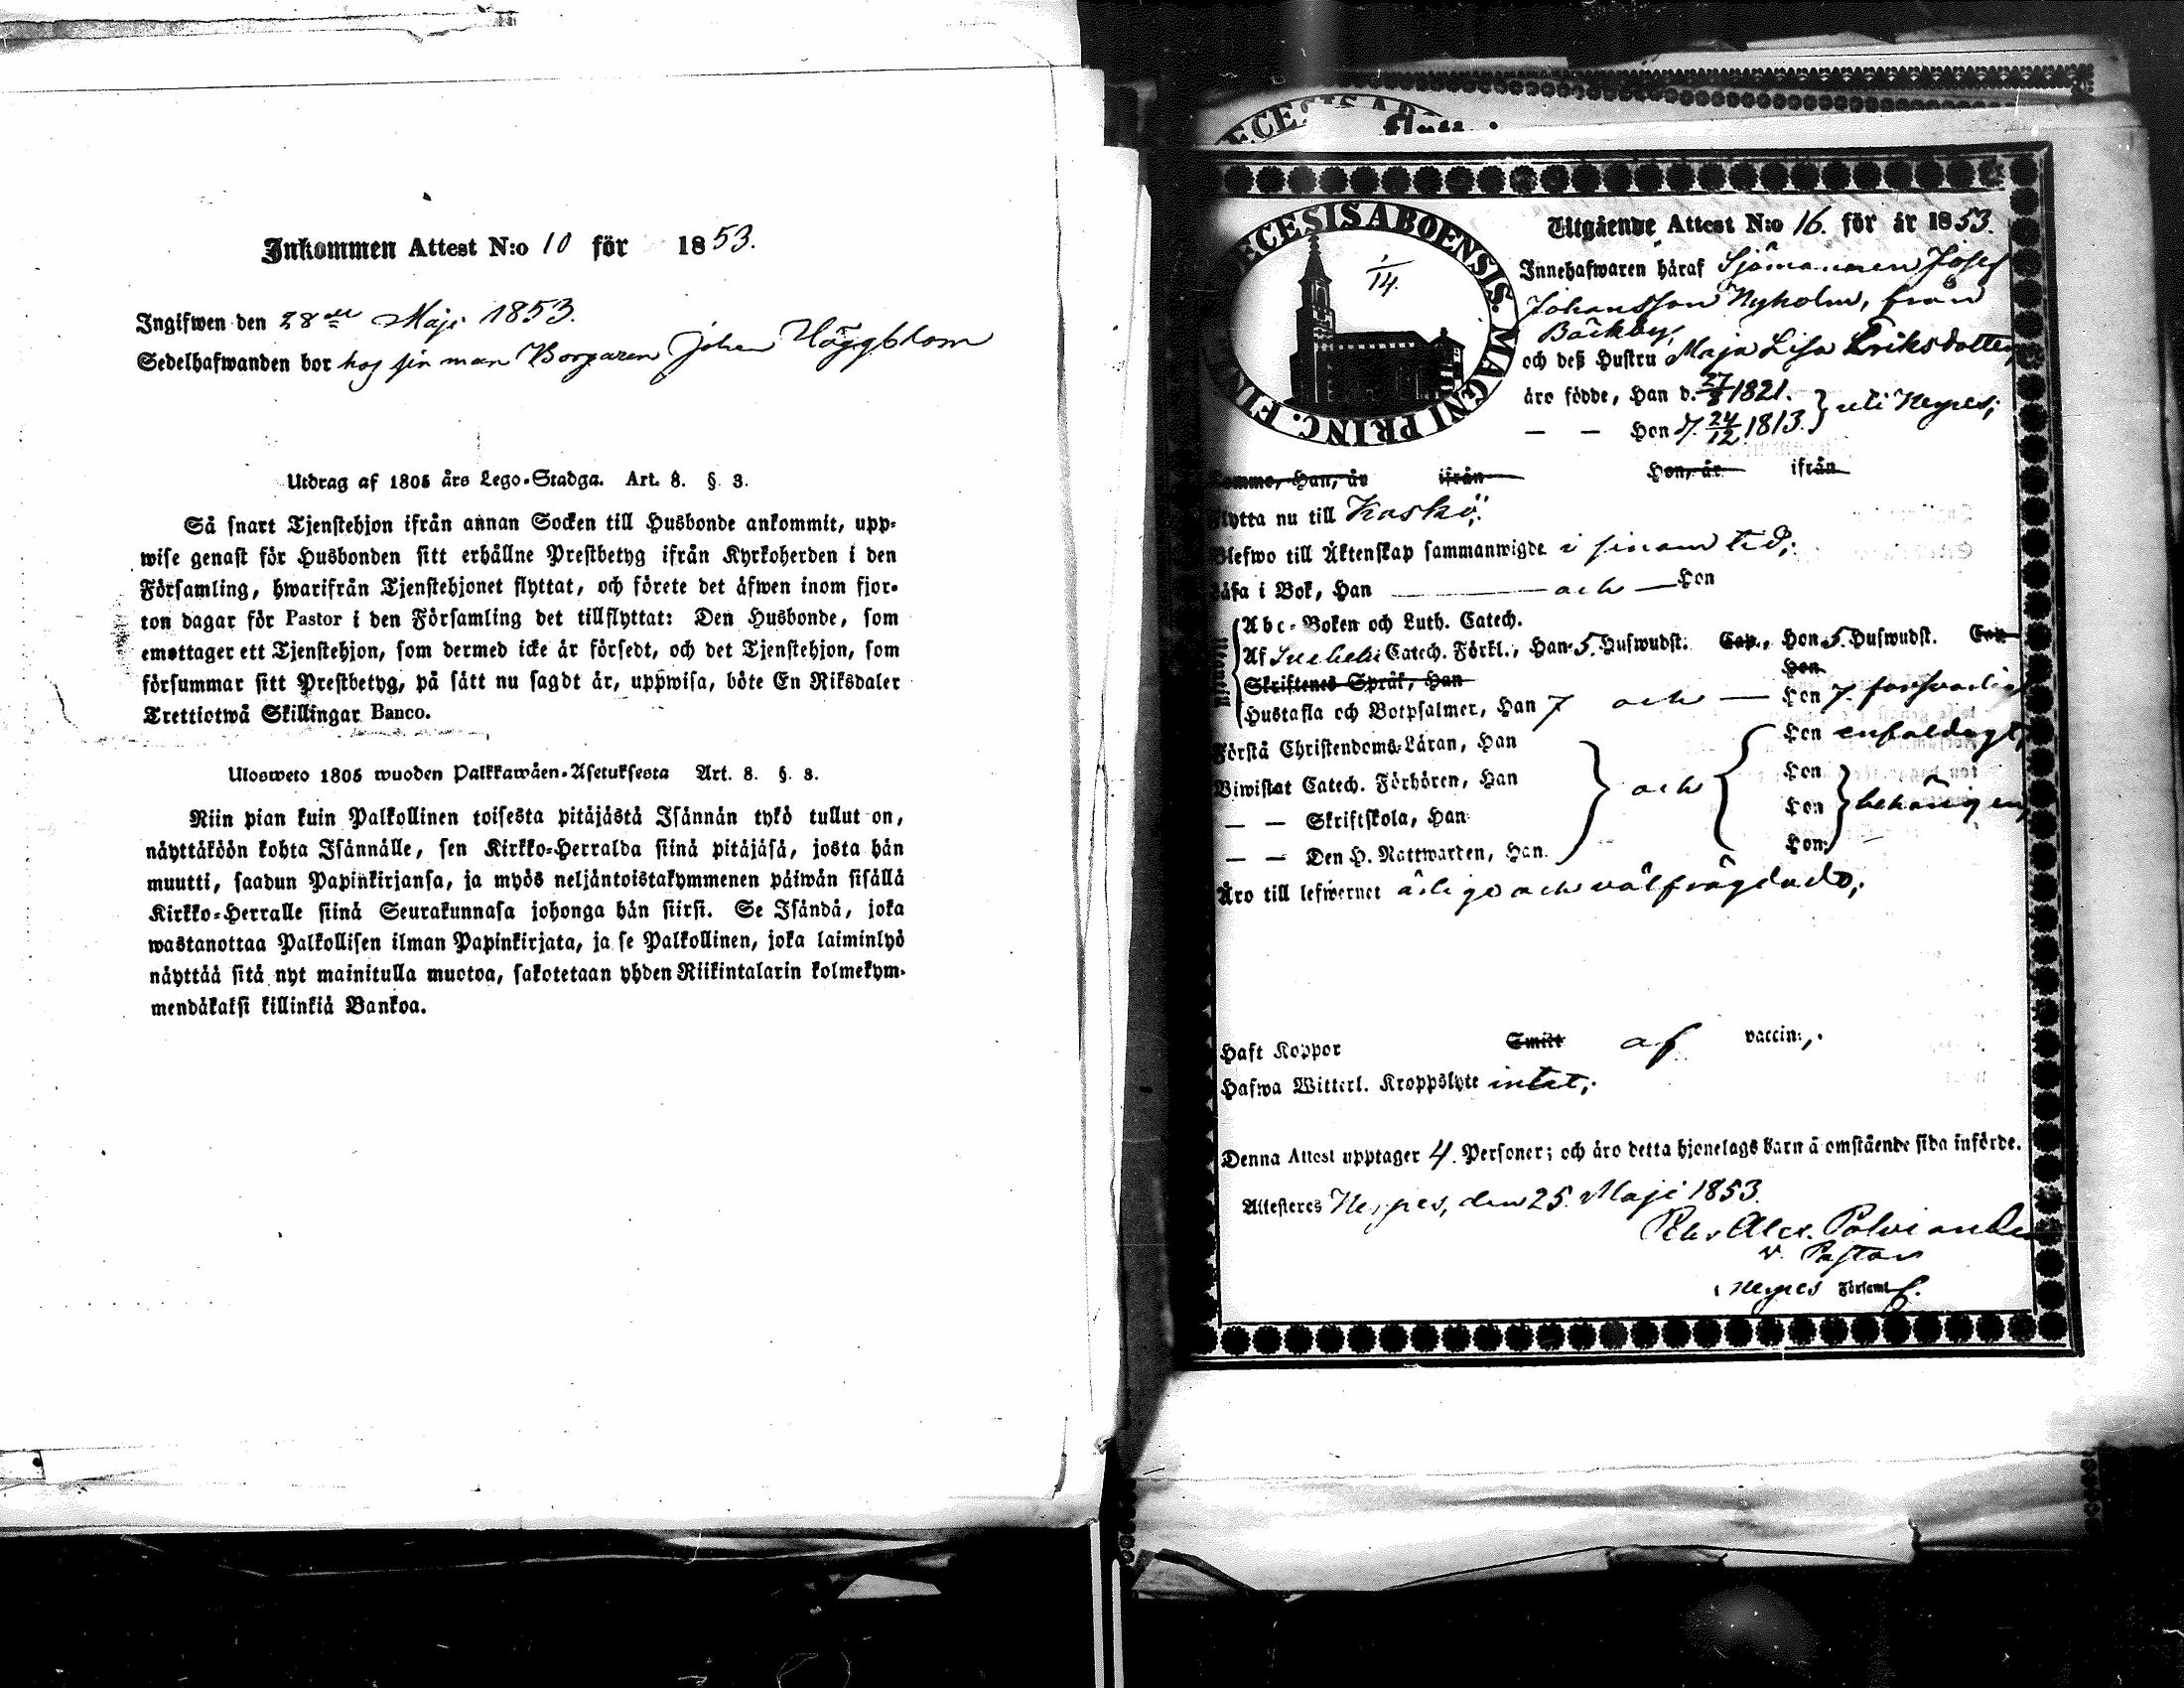 Inkommen Attest N:o 10 för 1853.
Ingifwen den 28de Maji 1853.
Sedelhafwanden bor hos sin man Borgaren Johan Häggblom
Utdrag af 1805 års Lego-Stadga. Art. 8. §. 3.
Så snart Tjenstehjon ifrån annan Socken till Husbonde ankommit, upp-
wise genast för Husbonden sitt erhållne Prestbetyg ifrån Kyrkoherden i den
Församling, hwarifrån Tjenstehjonet flyttat, och förete det äfwen inom fjor-
ton dagar för Pastor i den Församling det tillflyttat: Den Husbonde, som
emottager ett Tjenstehjon, som dermed icke är försedt, och det Tjenstehjon, som
försummar sitt Prestbetyg, på sätt nu sagdt är, uppwisa, böte En Riksdaler
Trettiotwå Skillingar Banco.
Ulosweto 1805 wuoden Palkkawäen-Asetuksesta Art. 8. §. 3.
Niin pian kuin Palkollinen toisesta pitäjästä Isännän tykö tullut on,
näyttäköön kohta Isännälle, sen Kirkko-Herralda siinä pitäjäsä, josta hän
muutti, saadun Papinkirjansa, ja myös neljäntoistakymmenen päiwän sisällä
Kirkko-Herralle siinä Seurakunnasa johonga hän siirsi. Se Isändä, joka
wastanottaa Palkollisen ilman Papinkirjata, ja se Palkollinen, joka laiminlyö
näyttää sitä nyt mainitulla muotoa, sakotetaan yhden Riikintalarin kolmekym-
mendäkaksi killinkiä Bankoa.
ECESIS ABOENSIS. MAGNI PRINC. FIN
1/14.
Utgående Attest N:o 16. för år 1853.
Innehafwaren häraf Sjömannen Josef
Johansson Nyholm, från
Bäckby,
och deß Hustru Maja Lisa Eriksdotter,
äro födde, Han d. 27/8 1821. } uti Nerpes;
— — Hon d. 24/12 1813.
komme, Han, är ifrån Hon, är ifrån
flytta nu till Kaskö;
Blefwo till Äktenskap sammanwigde i sinom tid;
Läsa i Bok, Han — och — Hon
Abc-Boken och Luth. Catech.
Af Svebelii Catech. Förkl., Han 5. Hufwudst. Cap., Hon 5. Hufwudst. Cap
Skriftenes Språk, Han Hon
Hustafla och Botpsalmer, Han 7 och — Hon 7. försvarligt
Förstå Christendoms-Läran, Han Hon enfaldigt,
Biwistat Catech. Förhören, Han och Hon
— — Skriftskola, Han Hon behörigen,
— — Den H. Nattwarden, Han Hon
Äro till lefwernet ärlige och välfrägdade;
Haft Koppor Smitt af vaccin;.
Hafwa Witterl. Kroppslyte intet;
Denna Attest upptager 4. Personer; och äro detta hjonelags barn å omstående sida införde.
Attesteres Nerpes, den 25. Maji 1853.
Alex. Polviander
v. Pastor
i Nerpes Församl.